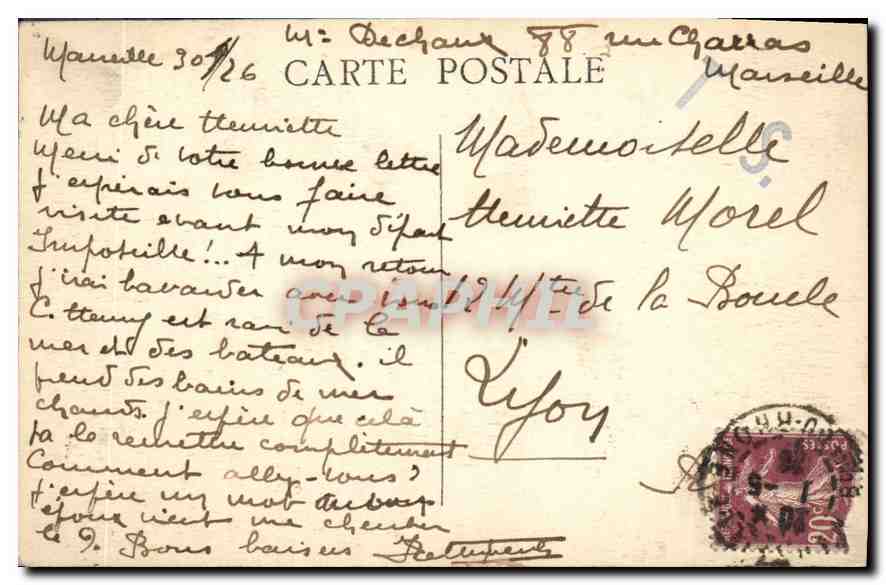 Mme Dechaux 88 rue Charras
Marseille
Marseille 30/1/26
CARTE POSTALE
Ma chère Henriette
Merci de votre bonne lettre
J'espérais vous faire
visite avant mon départ
Impossible!... A mon retour
j'irai bavarder avec vous
est ravi de la
mer et des bateaux. il
prend des bains de mer
chauds. j'espère que celà
va le remettre complètement
Comment allez-vous?
J'espère un mot
époux vient me chercher
le 9. Bons baisers
Mademoiselle
Henriette Morel
12 Mtée de la Boucle
Lyon
CPAPHIL
POSTES
20c